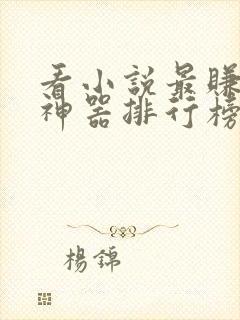 看小說最賺
神器排行榜
楊錦